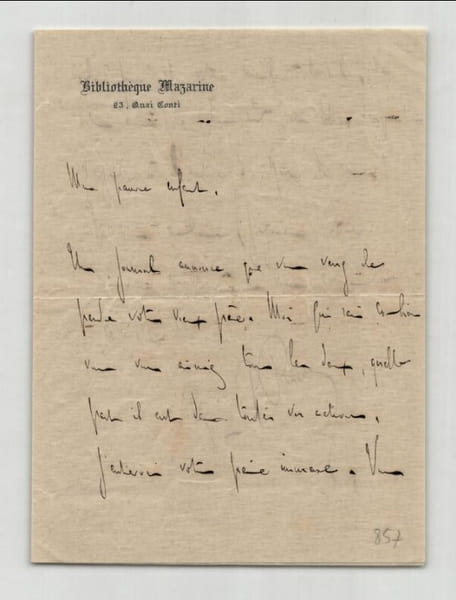 Bibliothèque Mazarine
23, Quai Conti
Mon pauvre enfant,
Un journal annonce que vous venez de
perdre votre vieux père. Moi qui sais combien
vous vous aimiez tous les deux, quelle
part il eut dans toutes vos actions,
j'entrevois votre peine immense. Vous
857